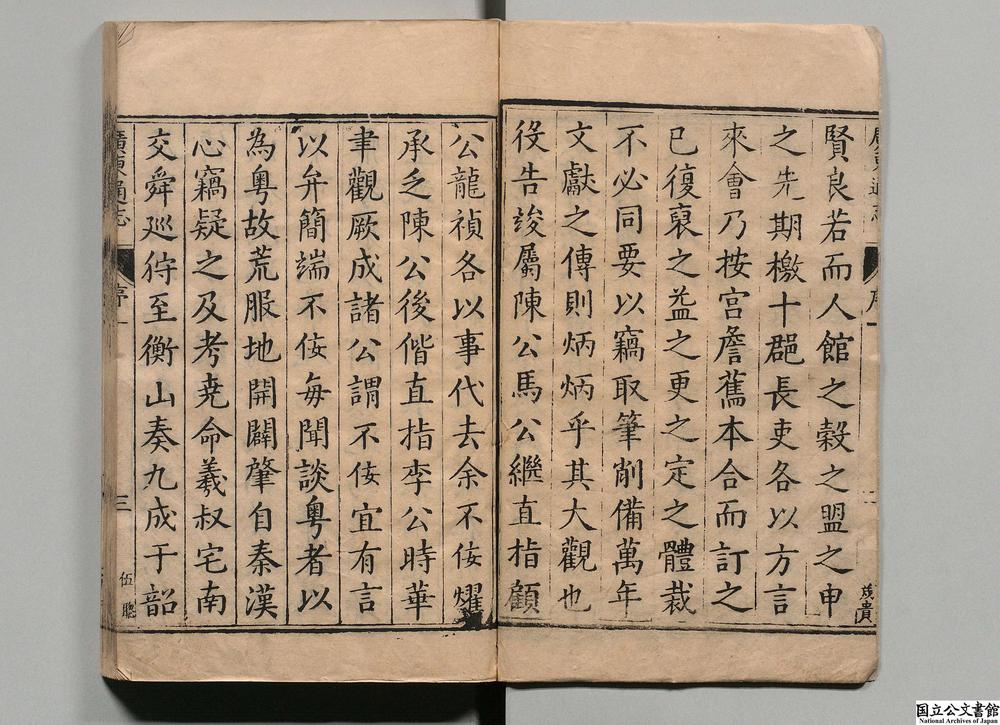 賢良若而人館之穀之盟之申
之先期檄十郡長吏各以方言
來會乃按宮詹舊本合而訂之
已復裒之益之更之定之體裁
不必同要以竊取筆削備萬年
文獻之傳則炳炳乎其大觀也
役告竣屬陳公馬公繼直指顧
公龍禎各以事代去余不佞燿
承乏陳公後偕直指李公時華
聿觀厥成諸公謂不佞宜有言
以弁簡端不佞每聞談粵者以
為粵故荒服地開闢肇自秦漢
心竊疑之及考堯命羲叔宅南
交舜巡狩至衡山奏九成于韶
廣東通志
序
三
伍聰
国立公文書館
National Archives of Japan